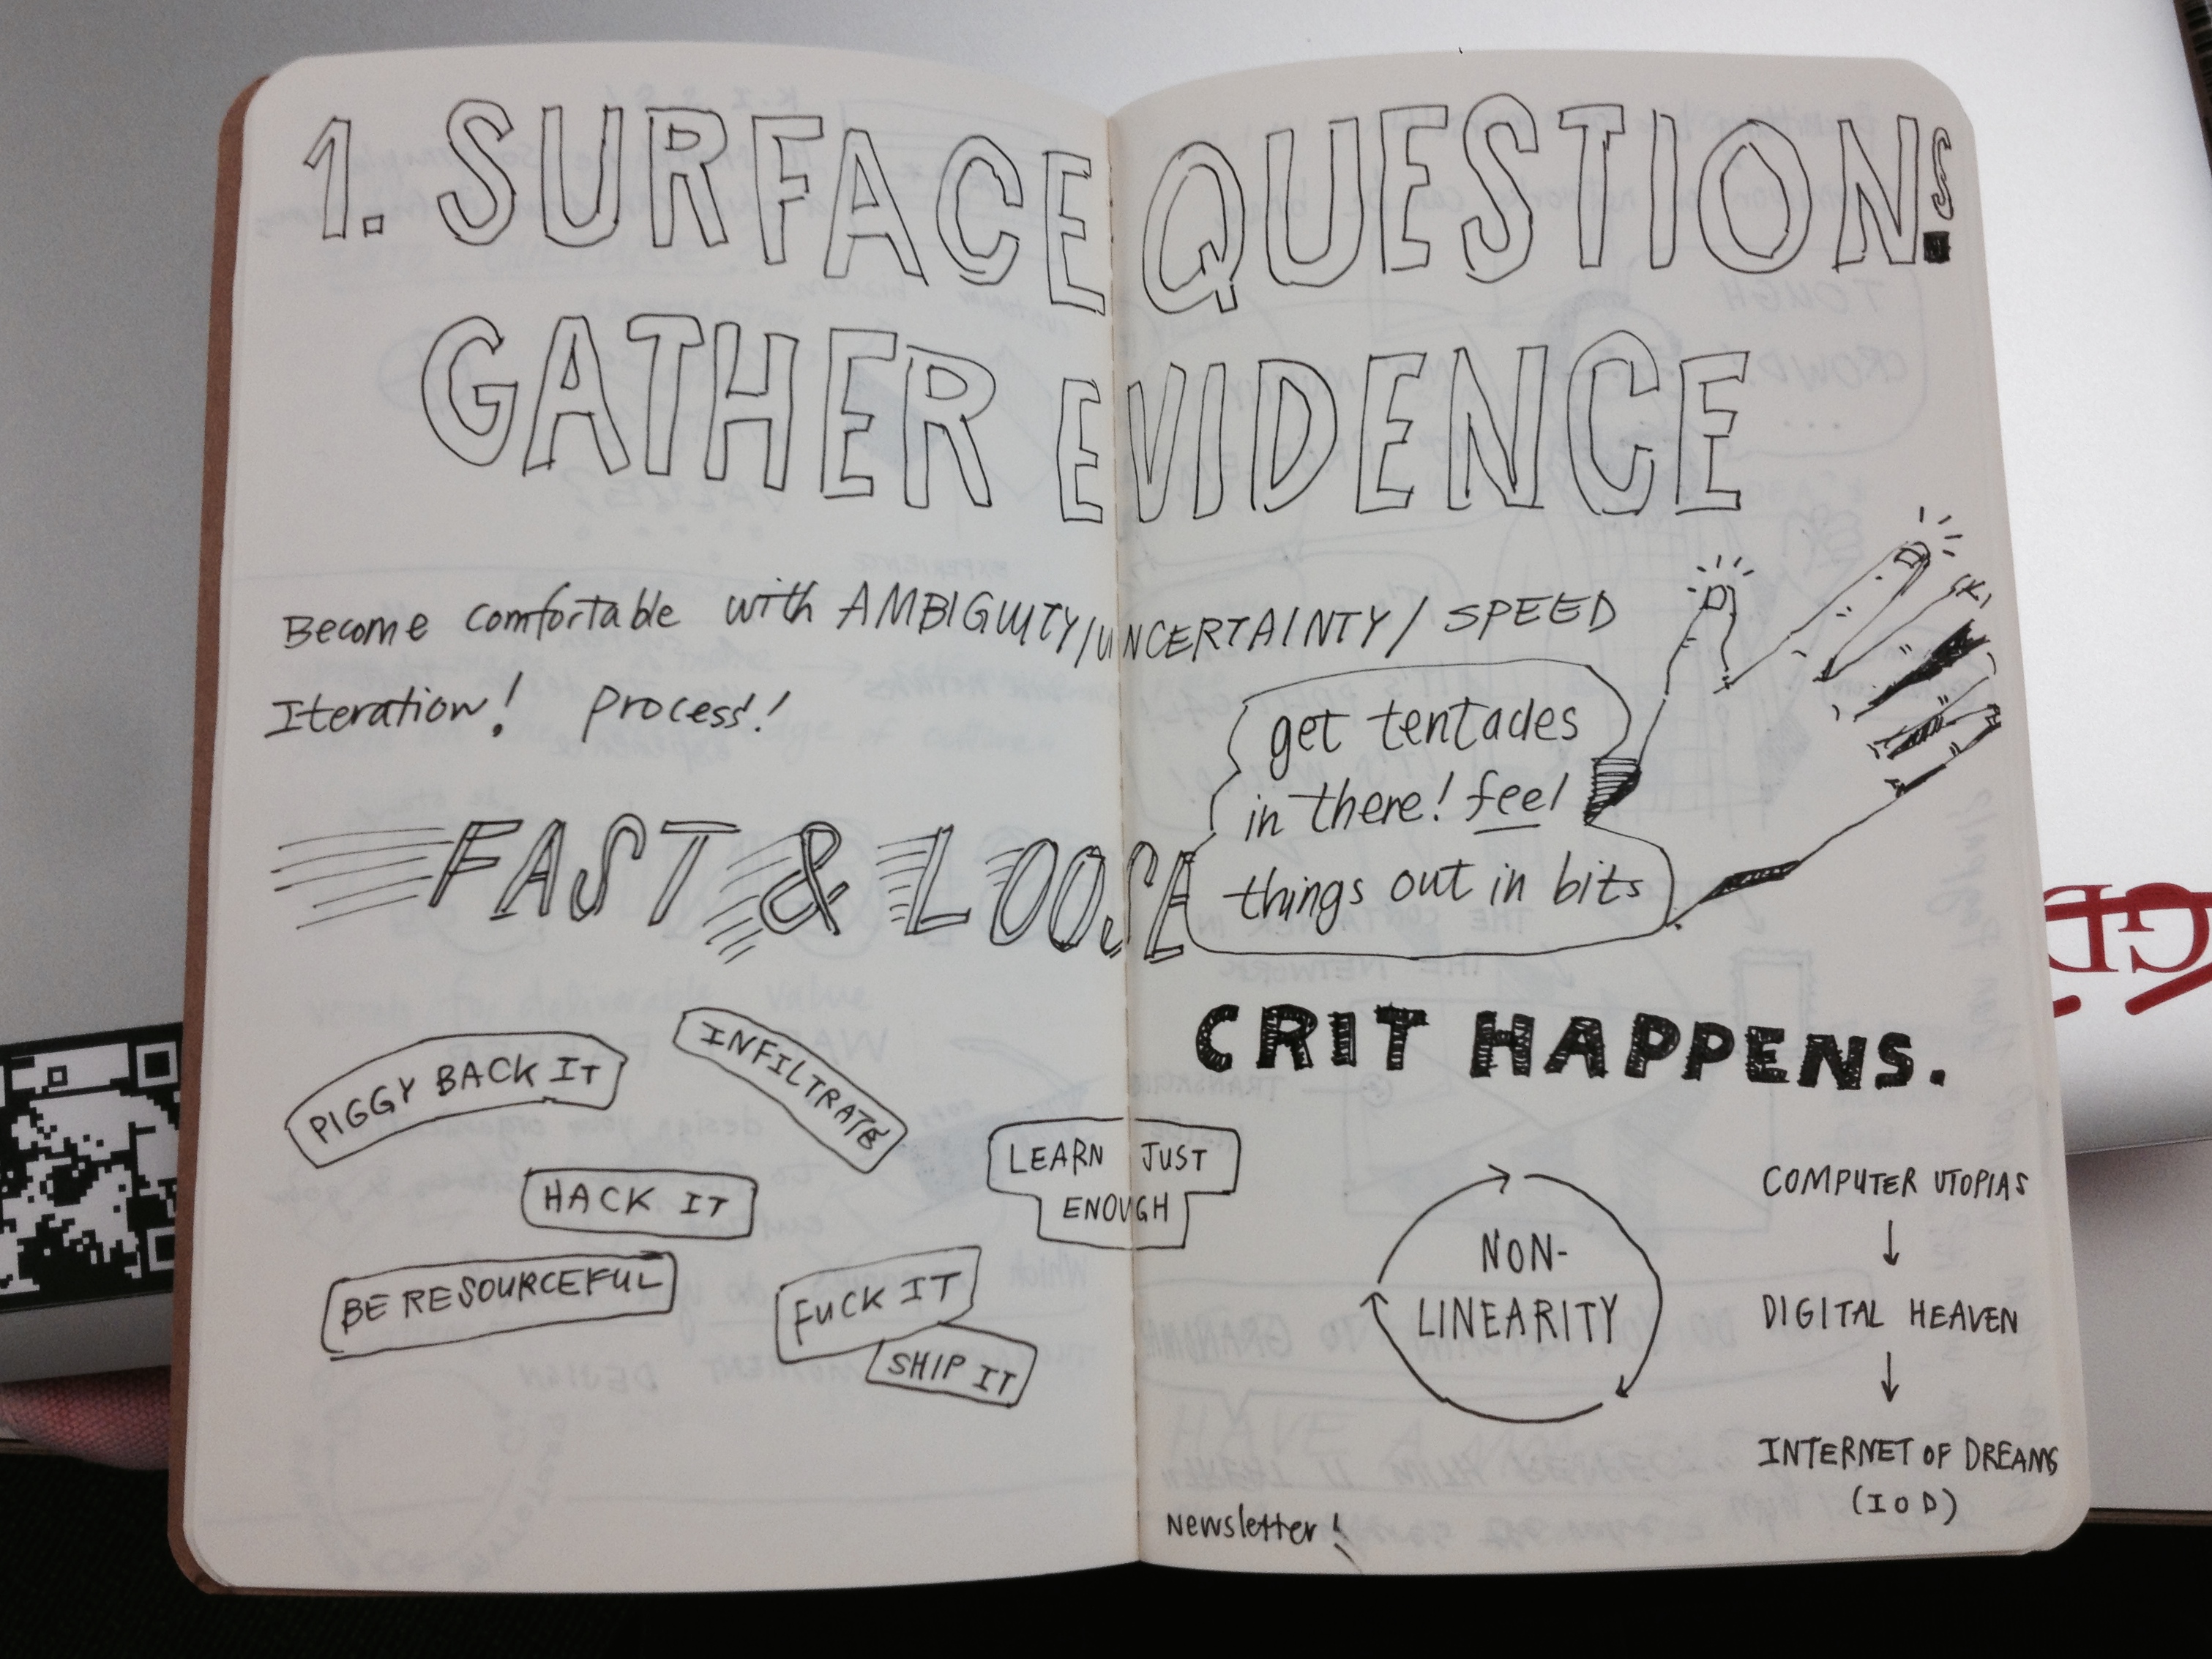 1. SURFACE QUESTIONS.
GATHER EVIDENCE
Become comfortable with AMBIGUITY/UNCERTAINTY/SPEED
Iteration! Process!
get tentacles
in there! feel
things out in bits
FAST & LOOSE
CRIT HAPPENS.
PIGGY BACK IT
INFILTRATE
HACK IT
LEARN JUST
ENOUGH
BE RESOURCEFUL
FUCK IT
SHIP IT
NON-
LINEARITY
COMPUTER UTOPIAS
↓
DIGITAL HEAVEN
↓
INTERNET OF DREAMS
(IOD)
Newsletter!